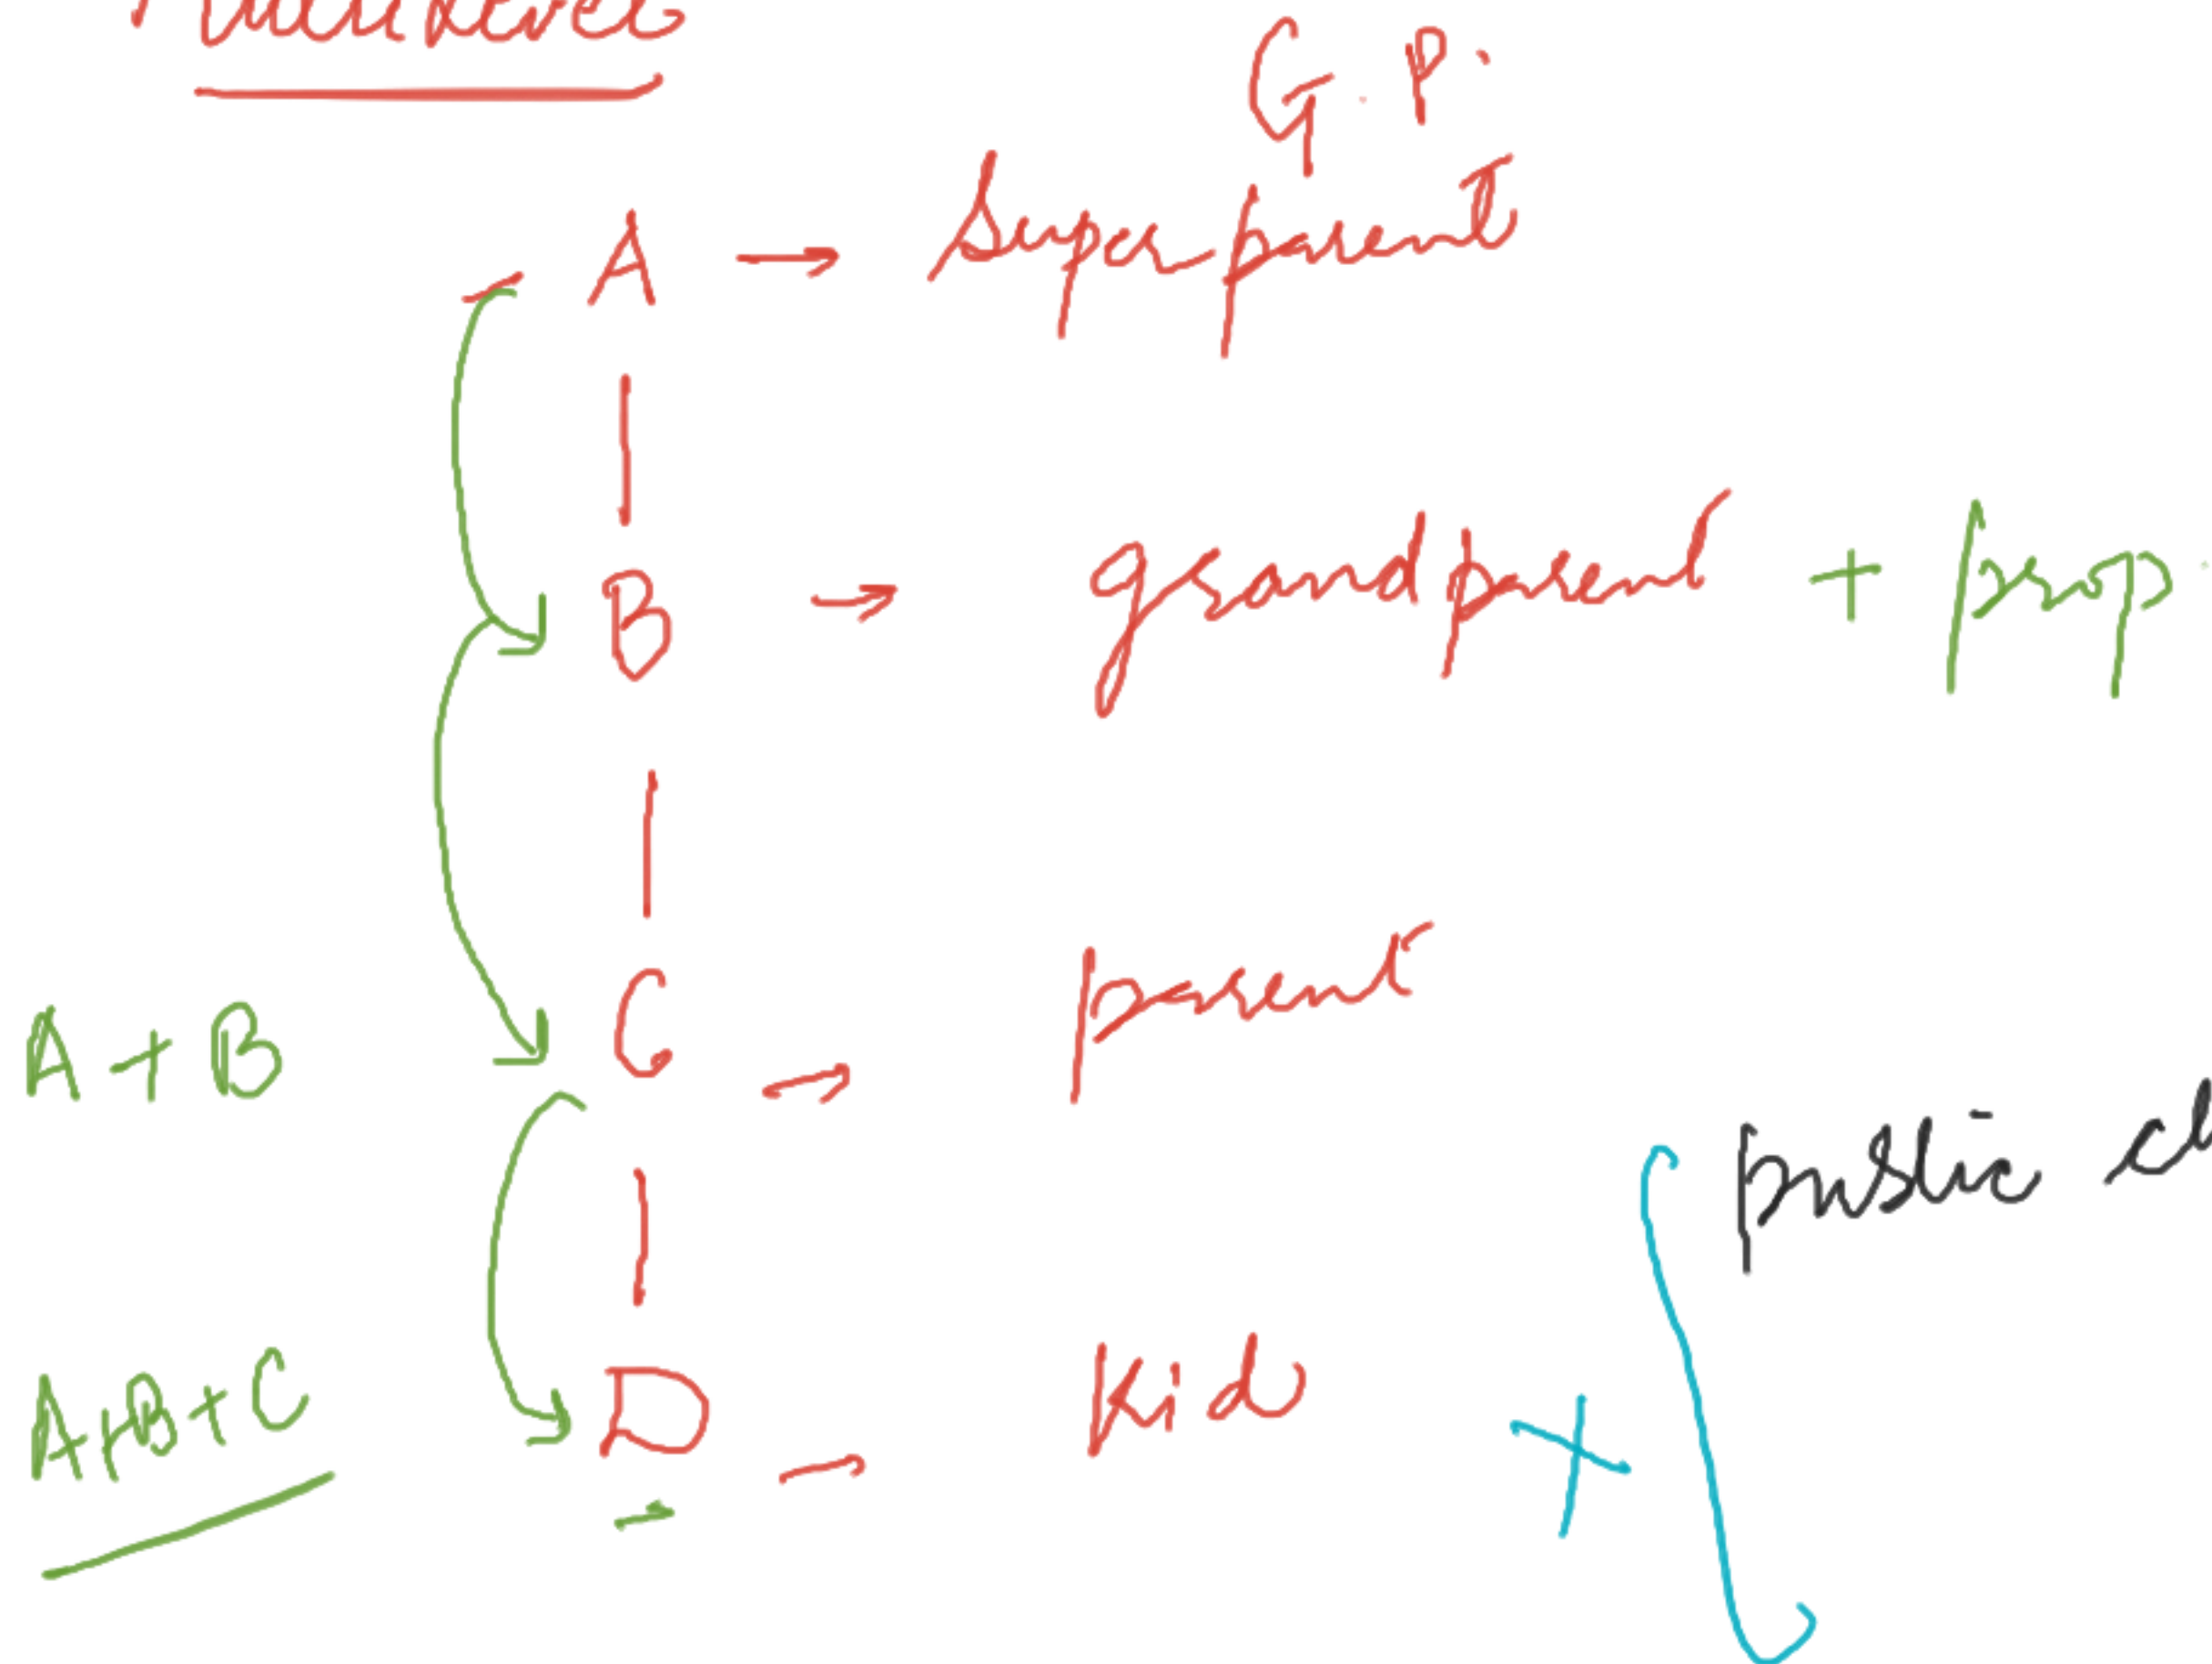 Multilevel
G.P.
A → Superparent
B → grandparent + prop.
A + B C → parent
public cl
A+B+C D → Kid +